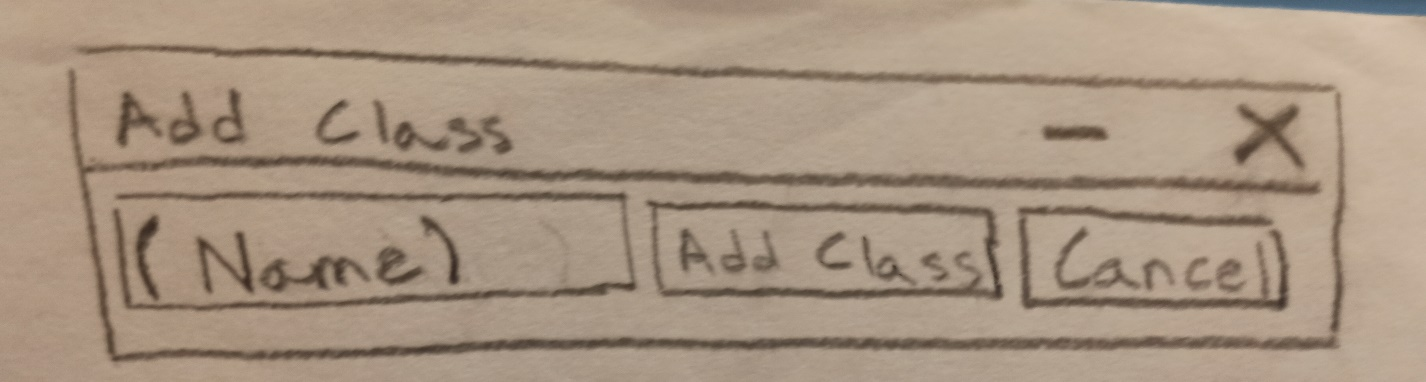 Add Class - X
(Name) Add Class Cancel